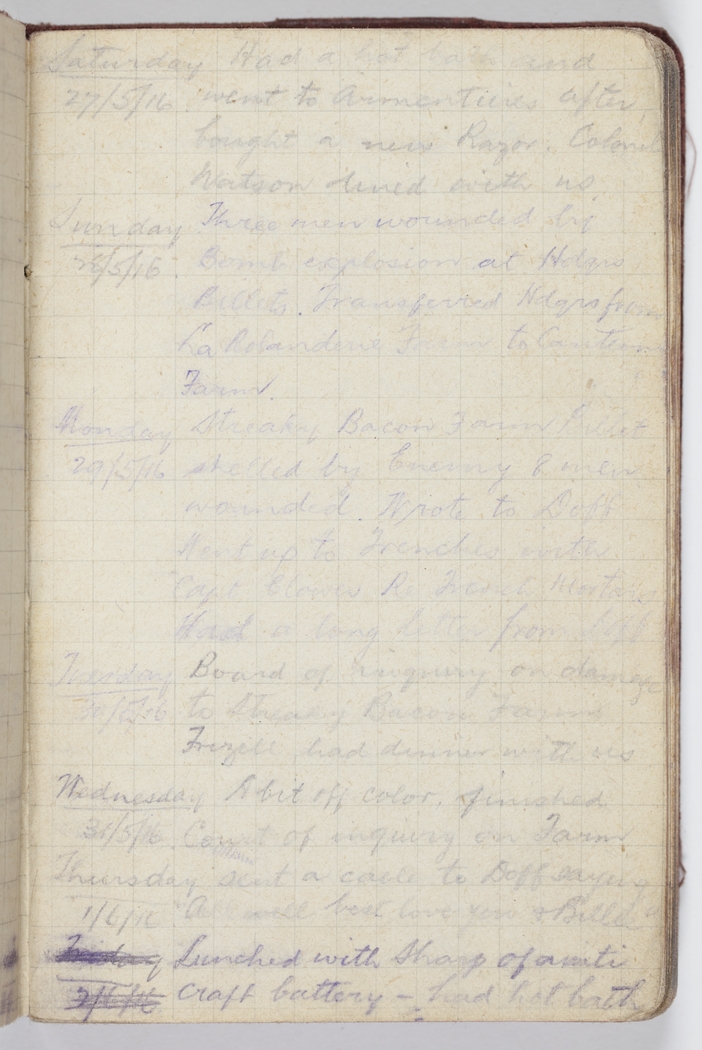 Saturday Had a hot bath and
27/5/16 went to Armentieres after,
bought a new Razor. Colonel
Watson dined with us
Sunday Three men wounded by
28/5/16 Bomb explosion at Hdqrs
Billets. Transferred Hdqrs from
La Rolanderie Farm to
Farm.
Monday Streaky Bacon Farm Billet
29/5/16 shelled by Enemy 8 men
wounded. Wrote to Doff
Went up to Trenches with
Capt Clowes Re Trench Mortars
Had a long letter from Doff
Tuesday Board of inquiry on damage
30/5/16 to Streaky Bacon Farm
Frizell had dinner with us
Wednesday A bit off color, finished
31/5/16 Court of inquiry on Farm
Thursday sent a cable to Doff saying
1/6/16 "All well best love & Billie"
Friday Lunched with Sharp of anti
2/6/16 craft battery – had hot bath